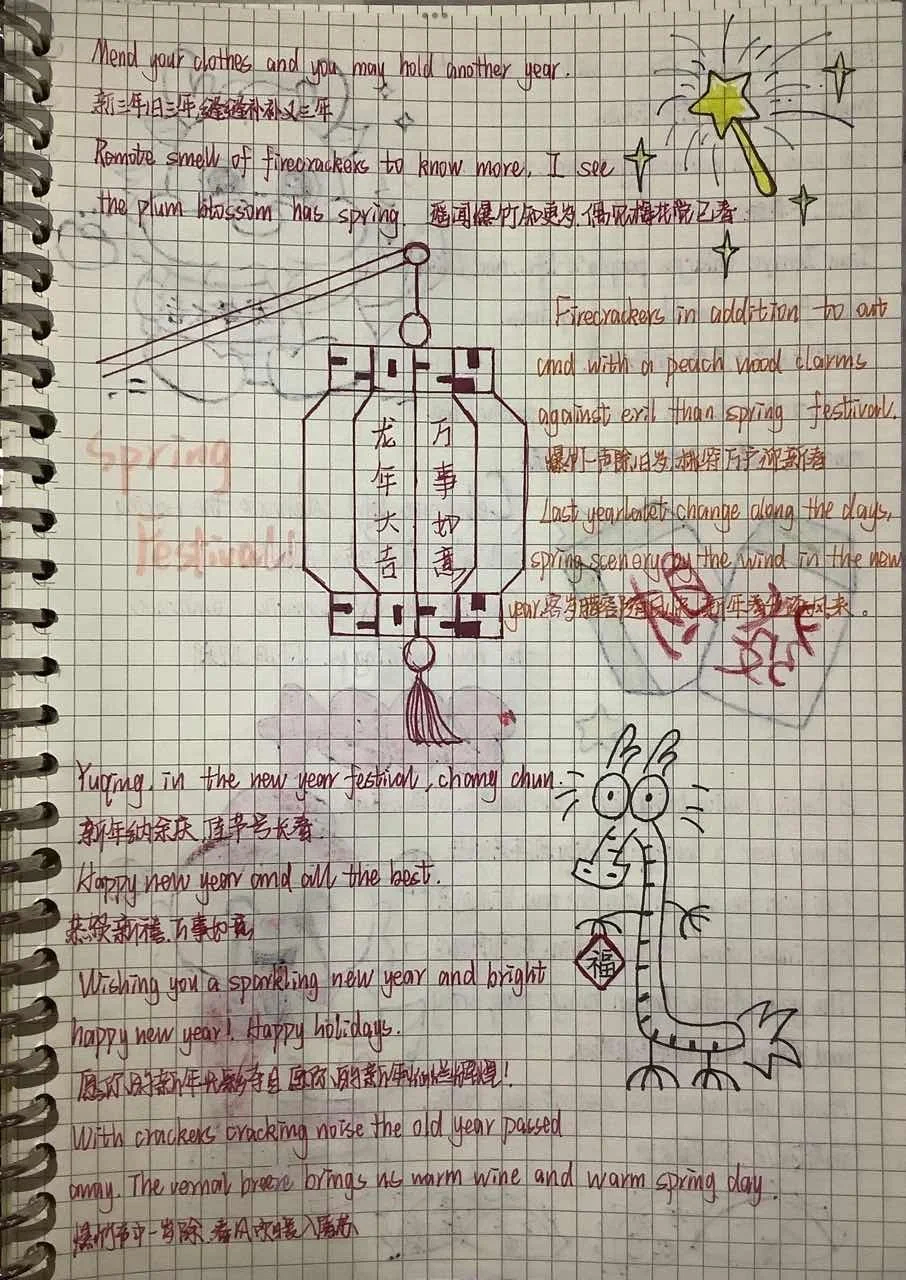 Mend your clothes and you may hold another year.
新三年旧三年,缝缝补补又三年
Remote smell of firecrackers to know more, I see
the plum blossom has spring 遥闻爆竹知更岁,偶见梅花院已春.
Firecrackers in addition to out
and with a peach wood clarms
against evil than spring festival.
爆竹一声除旧岁,桃符万户迎新春
Last year change along the days,
spring scenery by the wind in the new
year 客岁 新年春 风来。
龙年大吉
万事如意
Spring
Festival!
Yuqing, in the new year festival, chang chun.
新年纳余庆,佳节号长春.
Happy new year and all the best.
恭贺新禧,万事如意
福
Wishing you a sparkling new year and bright
happy new year! Happy holidays.
愿你的新年光彩夺目 愿你的新年灿烂辉煌!
With crackers cracking noise the old year passed
away. The vernal breeze brings us warm wine and warm spring day.
爆竹声中一岁除,春风送暖入屠苏